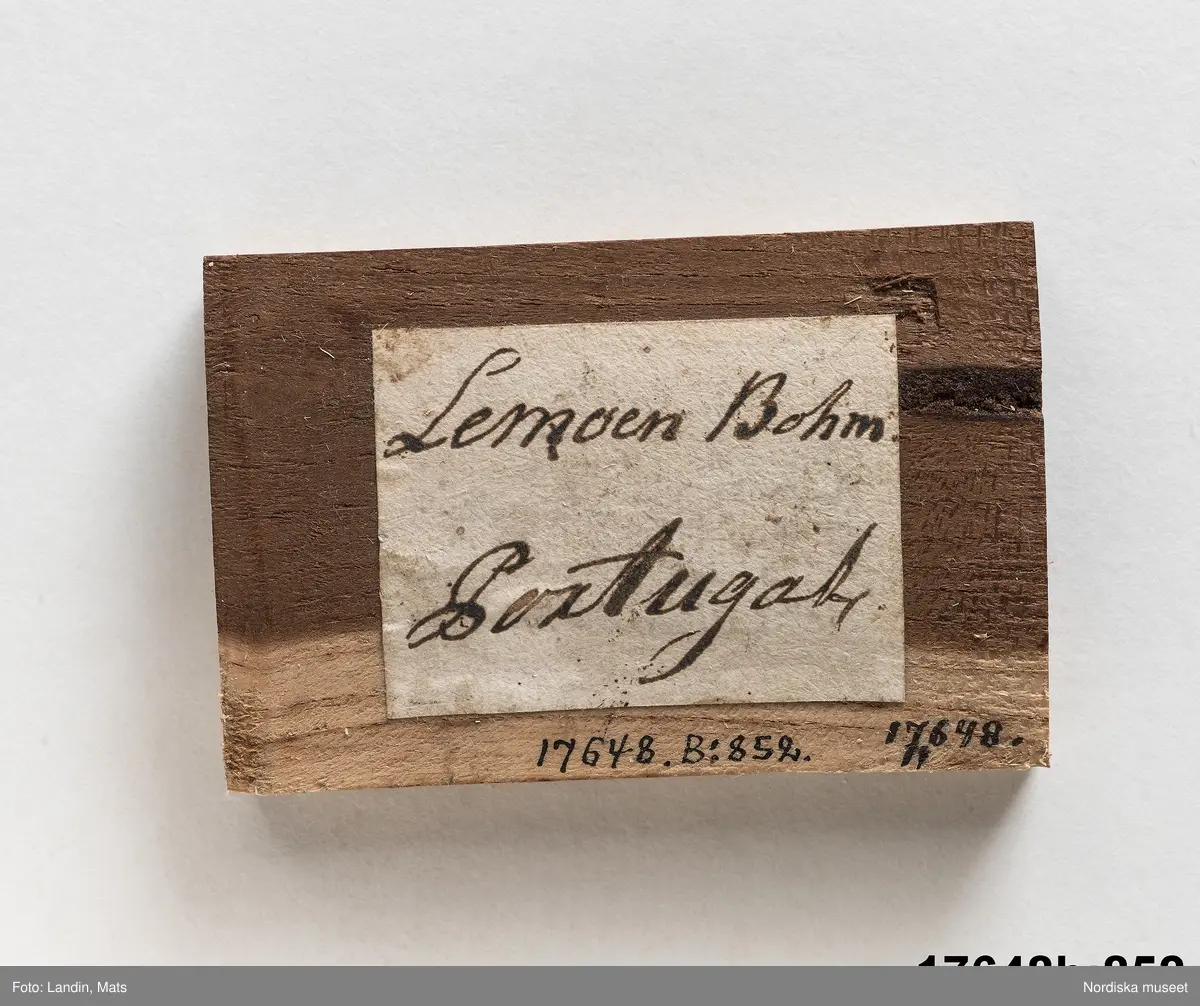 Lemoen Bohm.
Portugal,
17648. B:852.
17648.
17648b:852
Foto: Landin, Mats
Nordiska museet